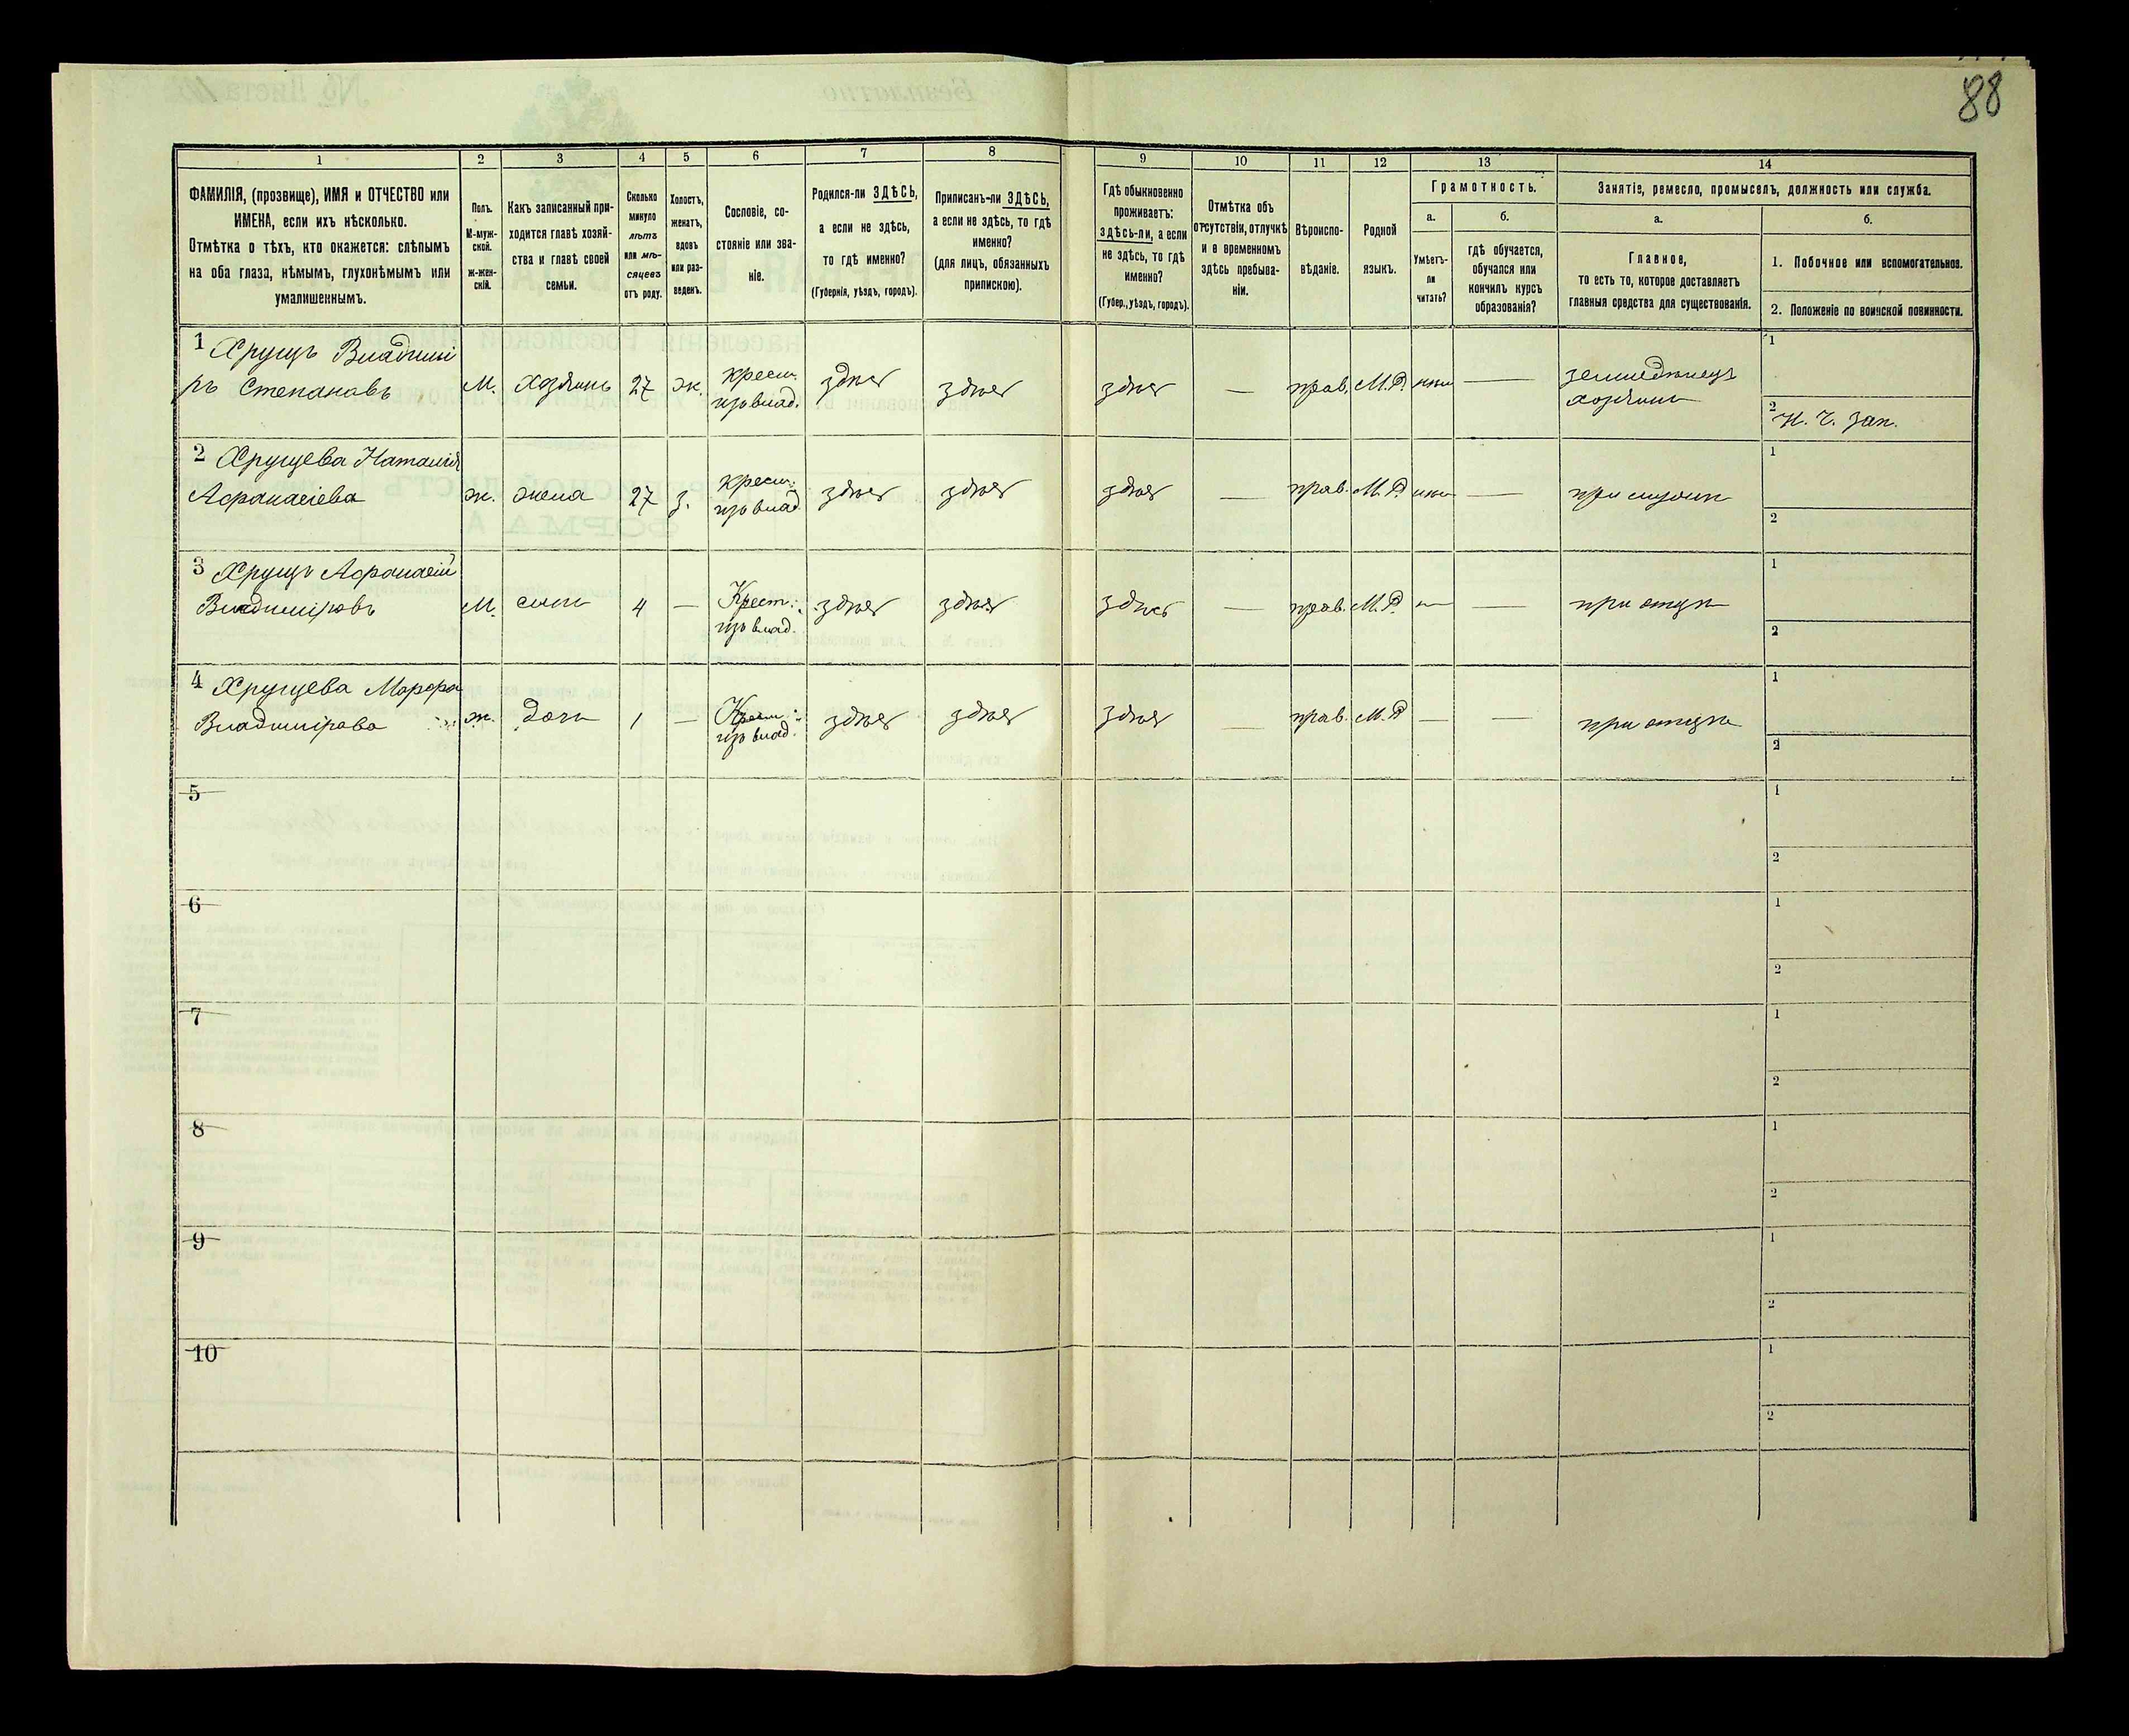 88
1
2
3
4
5
6
7
8
9
10
11
12
13
14
ФАМИЛІЯ, (прозвище), ИМЯ и ОТЧЕСТВО или
ИМЕНА, если ихъ нѣсколько.
Отмѣтка о тѣхъ, кто окажется: слѣпымъ
на оба глаза, нѣмымъ, глухонѣмымъ или
умалишеннымъ.
Полъ.
М-муж-
ской.
ж-жен-
скій.
Какъ записанный при-
ходится главѣ хозяй-
ства и главѣ своей
семьи.
Сколько
минуло
лѣтъ
или мѣ-
сяцевъ
отъ роду.
Холостъ,
женатъ,
вдовъ
или раз-
веденъ.
Сословіе, со-
стояніе или зва-
ніе.
Родился-ли ЗДѢСЬ,
а если не здѣсь,
то гдѣ именно?
(Губернія, уѣздъ, городъ).
Приписанъ-ли ЗДѢСЬ,
а если не здѣсь, то гдѣ
именно?
(для лицъ, обязанныхъ
припискою).
Гдѣ обыкновенно
проживаетъ:
здѣсь-ли, а если
не здѣсь, то гдѣ
именно?
(Губер., уѣздъ, городъ).
Отмѣтка объ
отсутствіи, отлучкѣ
и в временномъ
здѣсь пребыва-
ніи.
Вѣроиспо-
вѣданіе.
Родной
языкъ.
Грамотность.
а.
Умѣетъ-
ли
читать?
б.
гдѣ обучается,
обучался или
кончилъ курсъ
образованія?
Занятіе, ремесло, промыселъ, должность или служба.
а.
Главное,
то есть то, которое доставляетъ
главныя средства для существованія.
б.
1. Побочное или вспомогательное.
2. Положеніе по воинской повинности.
1 Хрущъ Владимі
ръ Степановъ
М.
хозяинъ
27
ж.
крест.
изъ влад.
здѣсь
здѣсь
здѣсь
—
прав.
М.Р.
—
земледѣлецъ
хозяинъ
1
2 Н. Ч. Зап.
2 Хрущева Наталія
Афанасіева
ж.
жена
27
з.
крест.
изъ влад.
здѣсь
здѣсь
здѣсь
—
прав.
М.Р.
—
при мужѣ
1
2
3 Хрущъ Афанасій
Владиміровъ
М.
сынъ
4
—
Крест.
изъ влад.
здѣсь
здѣсь
здѣсь
—
прав.
М.Р.
—
—
при отцѣ
1
2
4 Хрущева Марфа
Владимірова
ж.
дочь
1
—
Крест.
изъ влад.
здѣсь
здѣсь
здѣсь
—
прав.
М.Р
—
—
при отцѣ
1
2
5
1
2
6
1
2
7
1
2
8
1
2
9
1
2
10
1
2